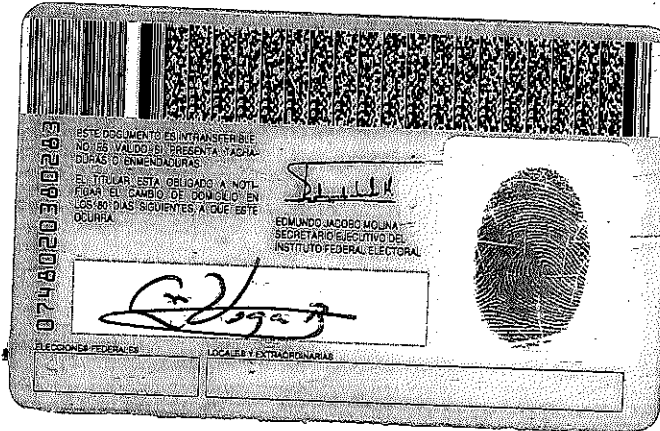 ESTE DOCUMENTO ES INTRANSFERIBLE
NO ES VALIDO SI PRESENTA TACHA-
DURAS O ENMENDADURAS
EL TITULAR ESTA OBLIGADO A NOTI-
FICAR EL CAMBIO DE DOMICILIO EN
LOS DIAS SIGUIENTES A QUE ESTE
OCURRA.
EDMUNDO JACOBO MOLINA
SECRETARIO EJECUTIVO DEL
INSTITUTO FEDERAL ELECTORAL
ELECCIONES FEDERALES
LOCALES Y EXTRAORDINARIAS